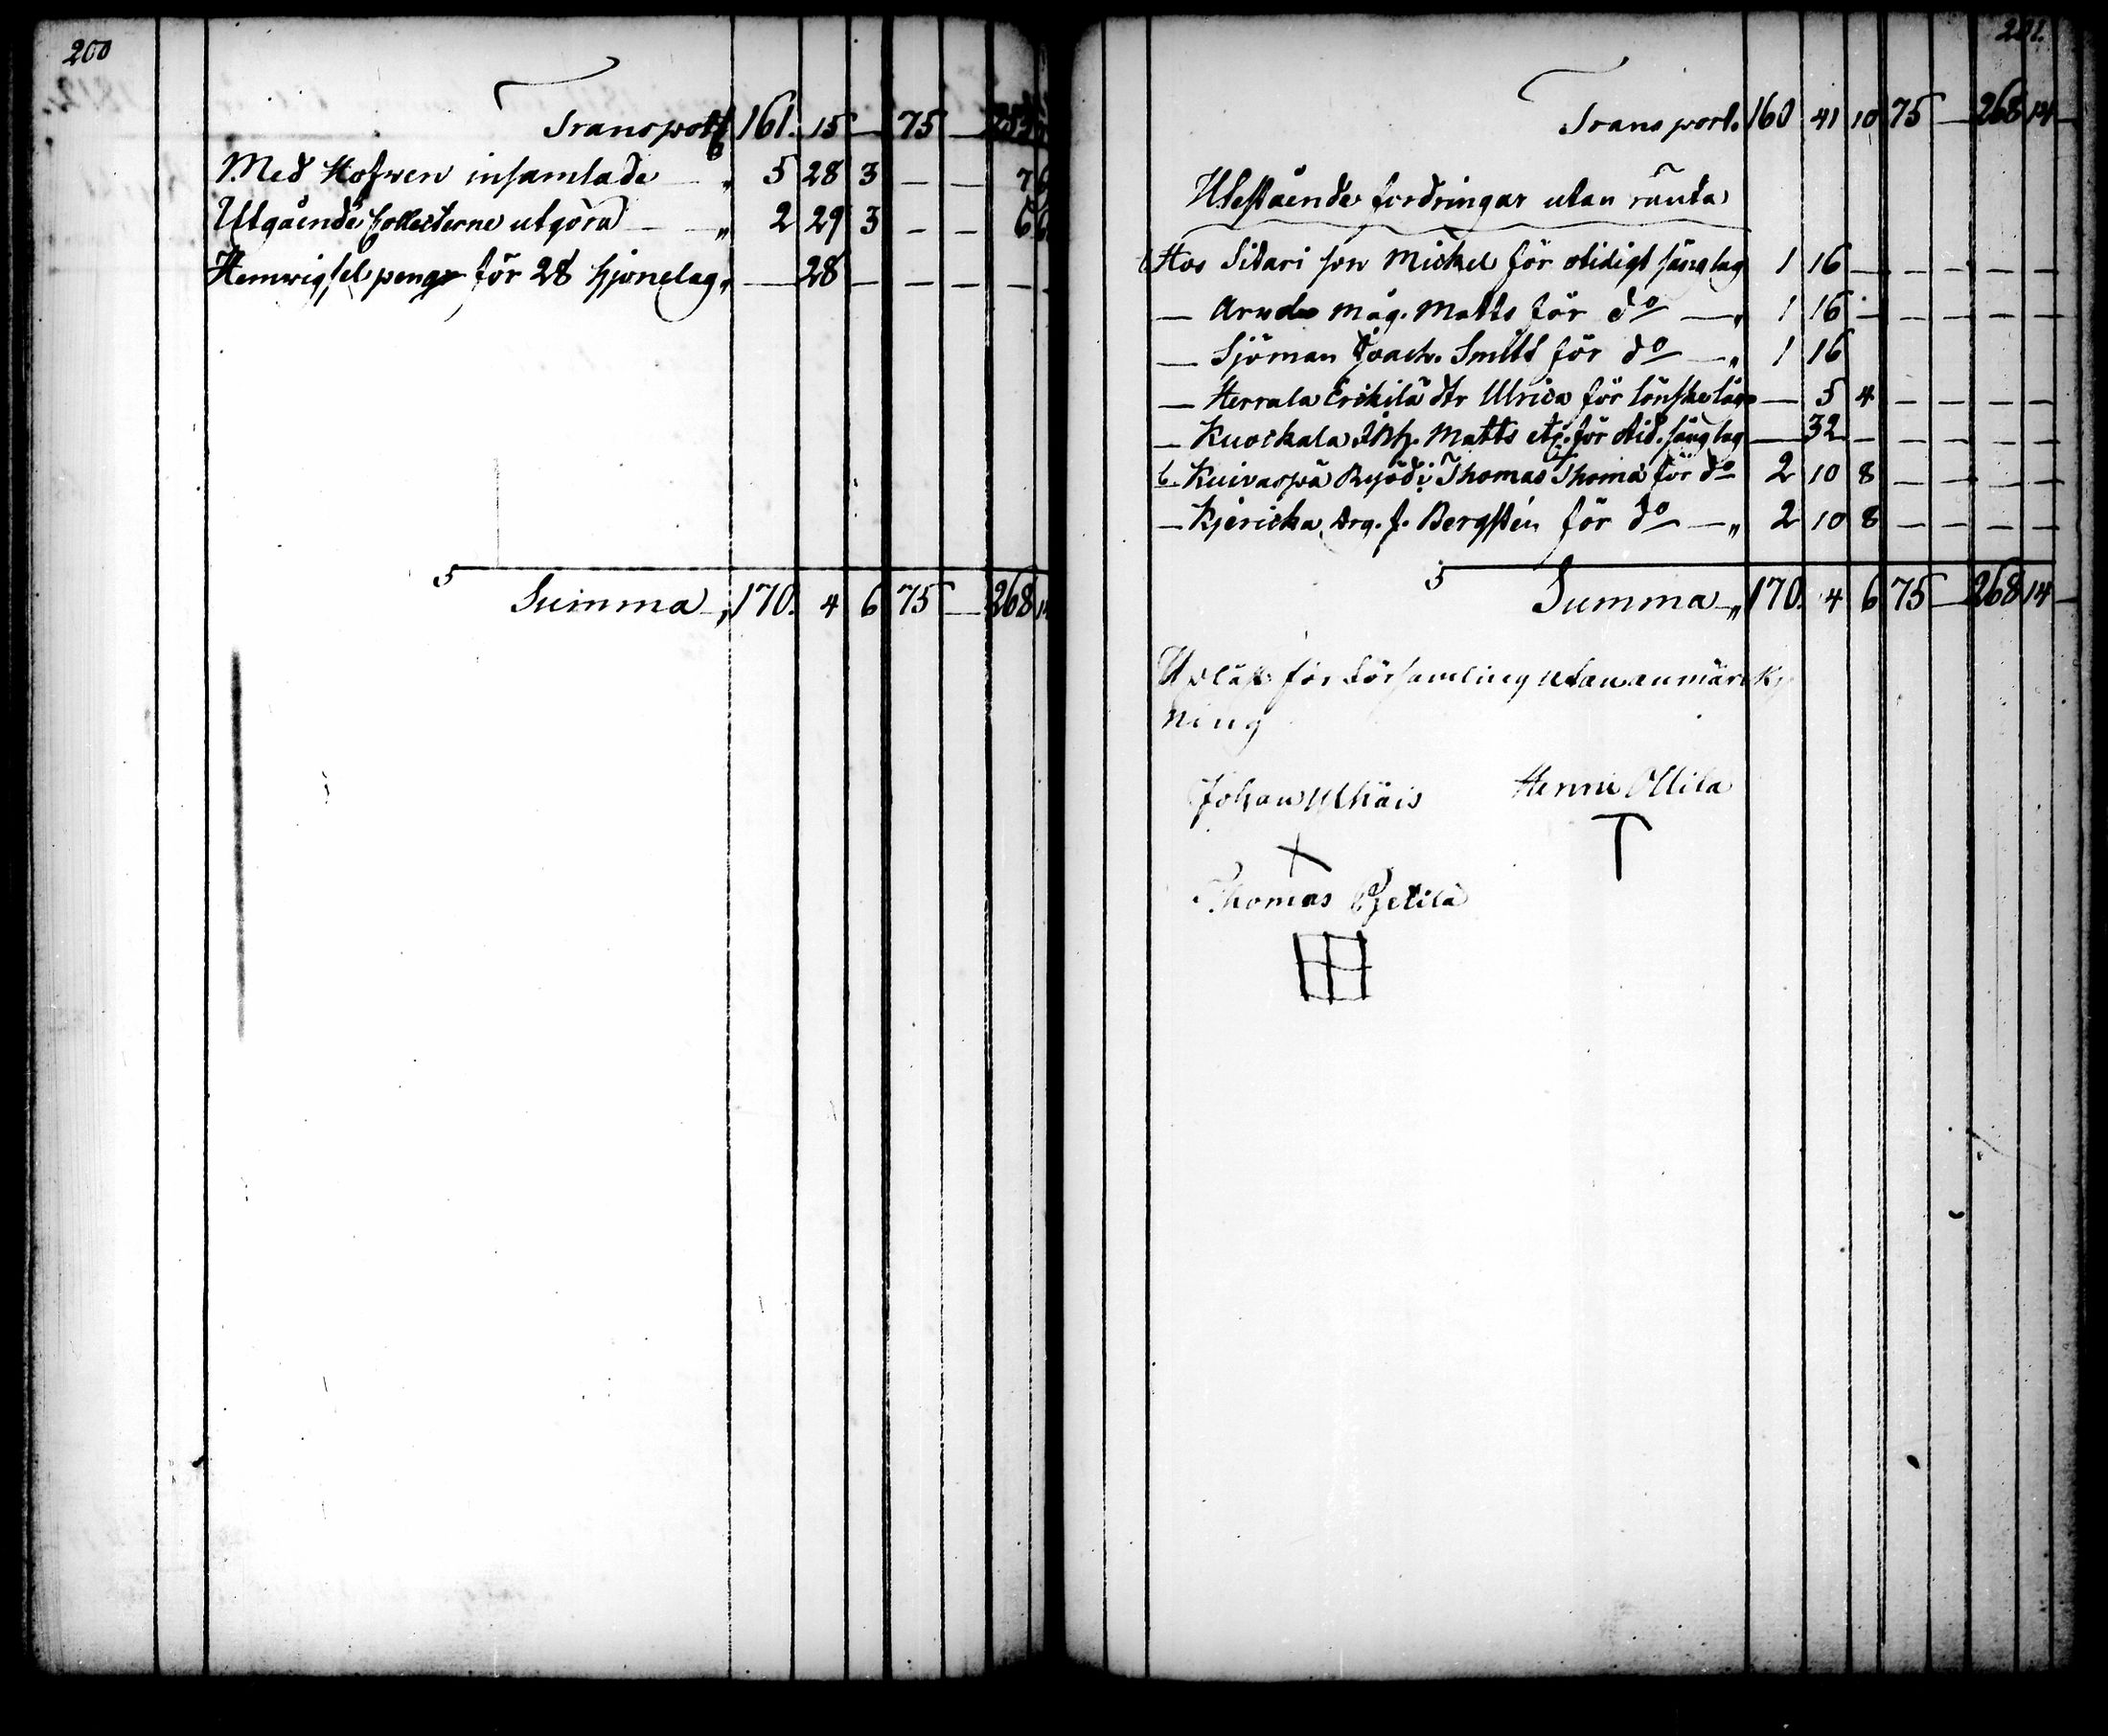 200
Transport 161. 15 — 75 —
Med Hofwen insamlade — „ 5 28 3 — — 7
Utgående Collecterne utgöra — „ 2 29 3 — — 6
Hemwigsel pengr för 28 hjonelag „ — 28 — — — —
Summa „ 170. 4 6 75 — 268
201.
Transport. 160 41 10 75 — 268 14 —
Utestående fordringar utan ränta
Hos Sidari son Mickel för otidigt sänglag 1 16 — — — — —
— Arvola måg. Matts för do — „ 1 16 — — — — —
— Sjöman Joach. Smitt för do — „ 1 16
— Herrala Erckilä dtr Ulrica för lönskeläge — 5 4 — — — —
— Kuockala Matts för otid. sänglag — 32 — — — — —
Kuivaspä Thomas Thomæ för do 2 10 8 — — — —
— Kjericka Drg. J. Bergstén för do — „ 2 10 8 — — — —
Summa „ 170. 4 6 75 — 268 14 —
Upläst för Församling utan anmärck
ning
Johan Henric Ollila
Thomas Pjetilä